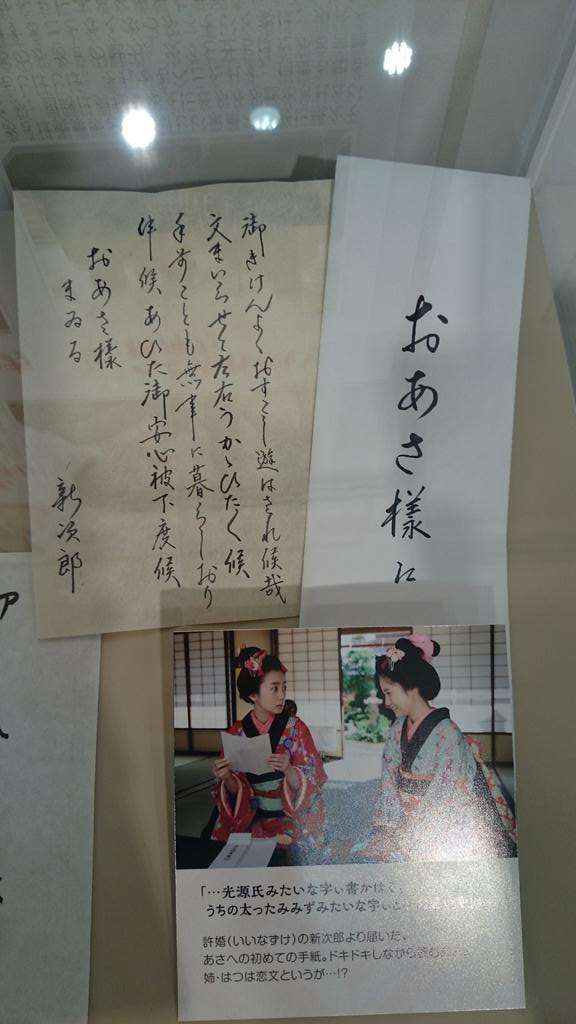 おあさ様
御きけんよくおすこし遊はされ候哉
文まいらせて左右うかゝひたく候
手前ことも無事に暮らしおり
候あひた御安心被下度候
おあさ様
まゐる
新次郎
「…光源氏みたいな字ぃ書かはる
うちの太ったみみずみたいな字ぃ
許婚(いいなずけ)の新次郎より届いた、
あさへの初めての手紙。ドキドキしながら
姉・はつは恋文というが…!?